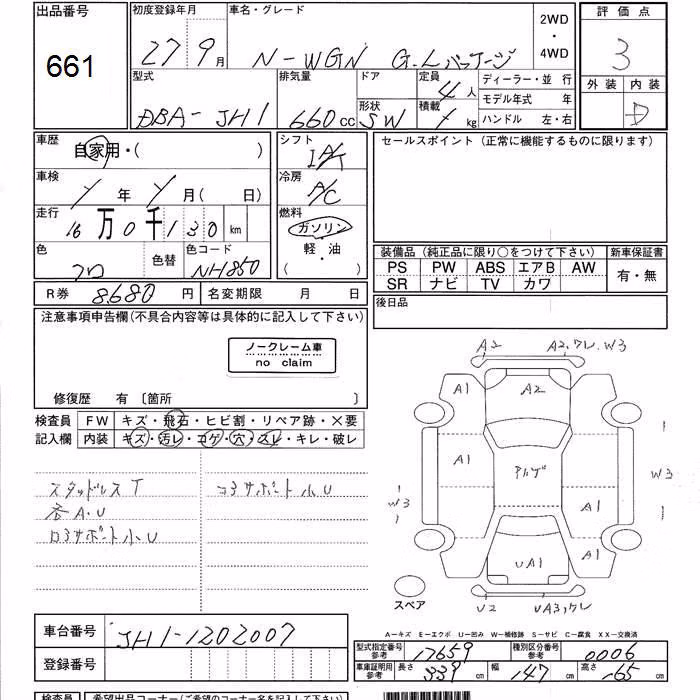 出品番号 初度登録年月 車名・グレード 2WD・4WD 評価点
661 27 9月 N-WGN G・Lパッケージ 3
型式 排気量 ドア 定員 4人 ディーラー・並 行 外装 内装
DBA-JH1 660cc 形状 SW 積載 kg モデル年式 年 D
ハンドル 左・右
車歴 自家用・( ) シフト セールスポイント(正常に機能するものに限ります)
車検 年 月(日) 冷房 A/C
走行 16万0千130km 燃料 ガソリン・軽・油 ( )
色 色替 色コード NH850
装備品(純正品に限り○をつけて下さい) 新車保証書
PS PW ABS エアB AW 有・無
SR ナビ TV カワ
R券 8680円 名変期限 月 日 後日品
注意事項申告欄(不具合内容等は具体的に記入して下さい)
ノークレーム車
no claim
修復歴 有 〔箇所 〕
検査員 FW キズ・飛石・ヒビ割・リペア跡・×要
記入欄 内装 キズ・汚レ・コゲ・穴・スレ・キレ・破レ
スタッドレスT コアサポート小U
各A・U
ロアサポート小U
A2 A2,クレ,W3
A1 A2 A1
A1 W3
W3 A1
UA1 A1
スペア U2 UA3,クレ
A-キズ E-エクボ U-凹み W-補修跡 S-サビ C-腐食 XX-交換済
車台番号 JH1-1202007
型式指定番号 参考 17659 種別区分番号 参考 0006
登録番号 車庫証明用 参考 長さ 339cm 幅 147cm 高さ 165cm
検査員 希望出品コーナー(ご希望のコーナー名を記入して下さい)